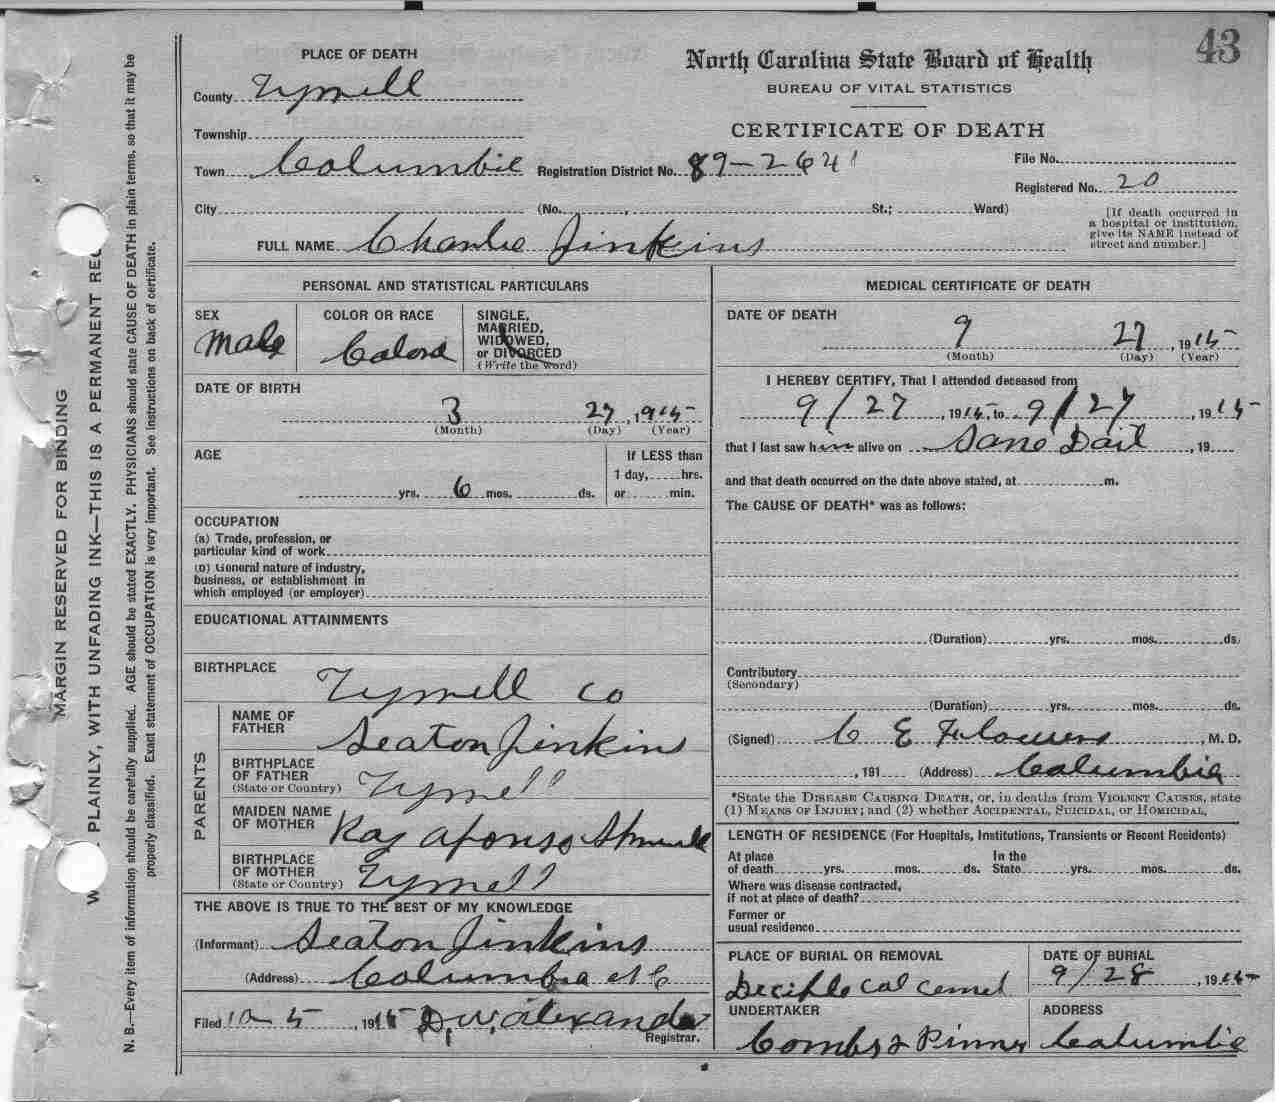 43
PLACE OF DEATH
County Tyrrell
Township
Town Columbia
City
North Carolina State Board of Health
BUREAU OF VITAL STATISTICS
CERTIFICATE OF DEATH
Registration District No. 89-2641
File No.
Registered No. 20
(No. , St.; Ward)
[If death occurred in
a hospital or institution,
give its NAME instead of
street and number.]
FULL NAME Charlie Jinkins
PERSONAL AND STATISTICAL PARTICULARS
SEX
Male
COLOR OR RACE
Colord
SINGLE,
MARRIED,
WIDOWED,
or DIVORCED
(Write the word)
DATE OF BIRTH
3 27, 1915
(Month) (Day) (Year)
AGE
yrs. 6 mos. ds.
If LESS than
1 day, hrs.
or min.
OCCUPATION
(a) Trade, profession, or
particular kind of work
(b) General nature of industry,
business, or establishment in
which employed (or employer)
EDUCATIONAL ATTAINMENTS
BIRTHPLACE
Tyrrell Co
PARENTS
NAME OF
FATHER
Seaton Jinkins
BIRTHPLACE
OF FATHER
(State or Country)
Tyrrell
MAIDEN NAME
OF MOTHER
BIRTHPLACE
OF MOTHER
(State or Country)
Tyrrell
THE ABOVE IS TRUE TO THE BEST OF MY KNOWLEDGE
(Informant) Seaton Jinkins
(Address) Columbia N C
Filed 10 5, 1915 D. W. Alexander
Registrar.
MEDICAL CERTIFICATE OF DEATH
DATE OF DEATH
9 27, 1915
(Month) (Day) (Year)
I HEREBY CERTIFY, That I attended deceased from
9/27, 1915, to 9/27, 1915
that I last saw him alive on Same Dait, 19
and that death occurred on the date above stated, at m.
The CAUSE OF DEATH* was as follows:
(Duration) yrs. mos. ds.
Contributory
(Secondary)
(Duration) yrs. mos. ds.
(Signed) C E , M. D.
, 191 (Address) Columbia
*State the DISEASE CAUSING DEATH, or, in deaths from VIOLENT CAUSES, state
(1) MEANS OF INJURY; and (2) whether ACCIDENTAL, SUICIDAL, or HOMICIDAL.
LENGTH OF RESIDENCE (For Hospitals, Institutions, Transients or Recent Residents)
At place
of death yrs. mos. ds.
In the
State yrs. mos. ds.
Where was disease contracted,
if not at place of death?
Former or
usual residence
PLACE OF BURIAL OR REMOVAL
Col Cemet
DATE OF BURIAL
9/28, 1915
UNDERTAKER
Combs & Pinner
ADDRESS
Columbia
MARGIN RESERVED FOR BINDING
PLAINLY, WITH UNFADING INK—THIS IS A PERMANENT REC
N. B.—Every item of information should be carefully supplied. AGE should be stated EXACTLY. PHYSICIANS should state CAUSE OF DEATH in plain terms, so that it may be
properly classified. Exact statement of OCCUPATION is very important. See instructions on back of certificate.